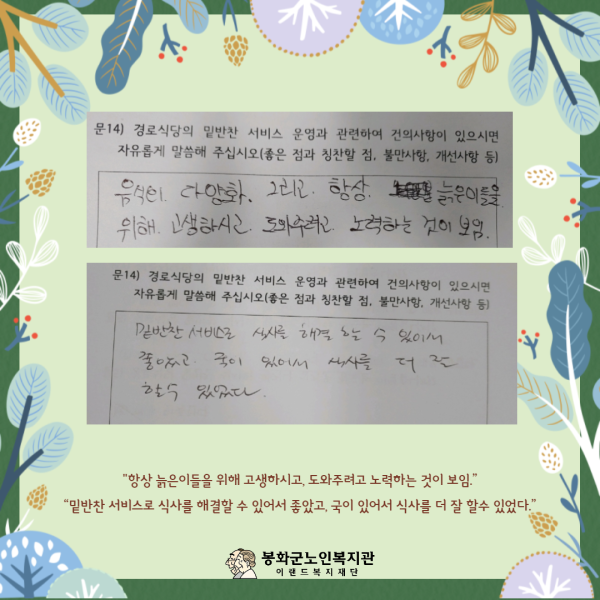 문14) 경로식당의 밑반찬 서비스 운영과 관련하여 건의사항이 있으시면
자유롭게 말씀해 주십시오(좋은 점과 칭찬할 점, 불만사항, 개선사항 등)
음식의. 다양화. 그리고. 항상. 늙은이들을
위해. 고생하시고. 도와주려고 노력하는 것이 보임.
문14) 경로식당의 밑반찬 서비스 운영과 관련하여 건의사항이 있으시면
자유롭게 말씀해 주십시오(좋은 점과 칭찬할 점, 불만사항, 개선사항 등)
밑반찬 서비스로 식사를 해결 할 수 있어서
좋았고. 국이 있어서 식사를 더 잘
할수 있었다.
"항상 늙은이들을 위해 고생하시고, 도와주려고 노력하는 것이 보임."
"밑반찬 서비스로 식사를 해결할 수 있어서 좋았고, 국이 있어서 식사를 더 잘 할수 있었다."
봉화군노인복지관
이랜드복지재단